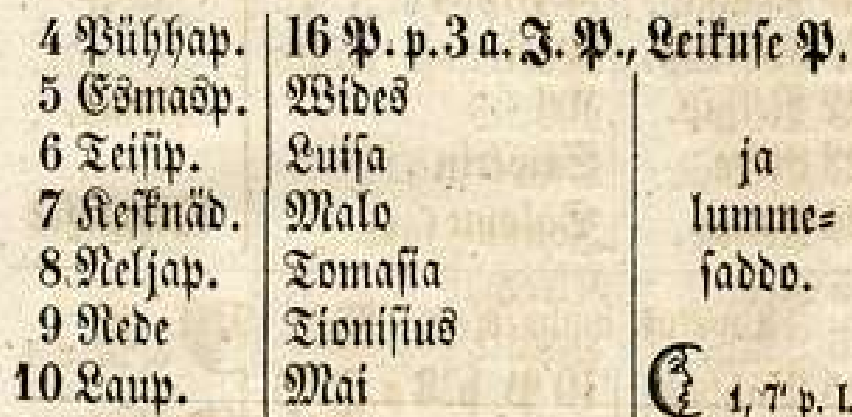 4 Pühhap. 16 P. p. 3 a. J. P., Leikuse P.
5 Esmasp. Wides
6 Teisip. Luisa ja
7 Kesknäd. Malo lumme=
8 Neljap. Tomasia saddo.
9 Rede Tionisius
10 Laup. Mai 1, 7' p. l.